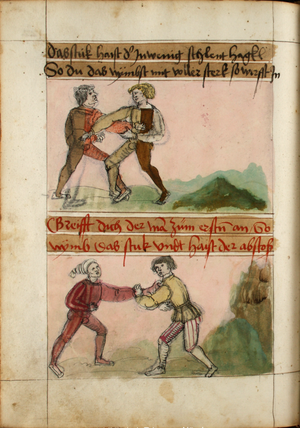 Das stuk haist d' Inwenig schlent hagk
So du das nymbst mit voller sterk so wirfst Jn
Greifft dich der ma zum erstn an So
nymb Das stuk vnd haist der abstos